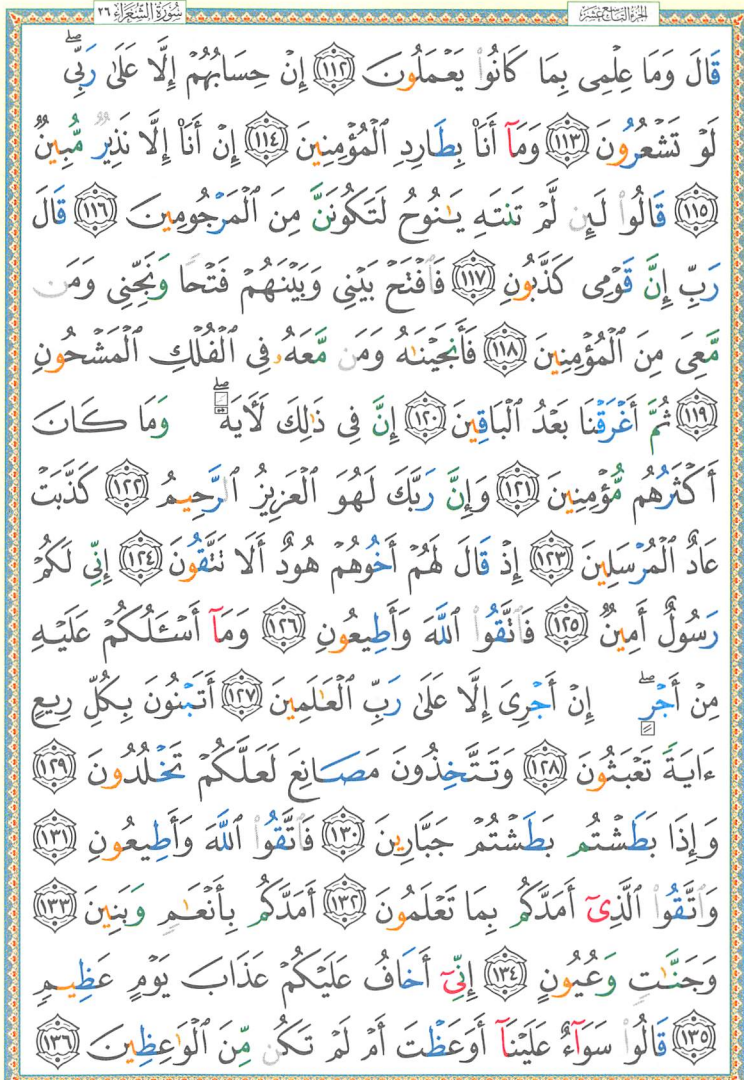 سُورَةُ الشُّعَرَاءِ ٢٦
الجُزْءُ التَّاسِعَ عَشَرَ
قَالَ وَمَا عِلْمِى بِمَا كَانُوا۟ يَعْمَلُونَ ١١٢ إِنْ حِسَابُهُمْ إِلَّا عَلَىٰ رَبِّى ۖ
لَوْ تَشْعُرُونَ ١١٣ وَمَآ أَنَا۠ بِطَارِدِ ٱلْمُؤْمِنِينَ ١١٤ إِنْ أَنَا۠ إِلَّا نَذِيرٌ مُّبِينٌ
١١٥ قَالُوا۟ لَئِن لَّمْ تَنتَهِ يَـٰنُوحُ لَتَكُونَنَّ مِنَ ٱلْمَرْجُومِينَ ١١٦ قَالَ
رَبِّ إِنَّ قَوْمِى كَذَّبُونِ ١١٧ فَٱفْتَحْ بَيْنِى وَبَيْنَهُمْ فَتْحًا وَنَجِّنِى وَمَن
مَّعِىَ مِنَ ٱلْمُؤْمِنِينَ ١١٨ فَأَنجَيْنَـٰهُ وَمَن مَّعَهُۥ فِى ٱلْفُلْكِ ٱلْمَشْحُونِ
١١٩ ثُمَّ أَغْرَقْنَا بَعْدُ ٱلْبَاقِينَ ١٢٠ إِنَّ فِى ذَٰلِكَ لَـَٔايَةً ۖ وَمَا كَانَ
أَكْثَرُهُم مُّؤْمِنِينَ ١٢١ وَإِنَّ رَبَّكَ لَهُوَ ٱلْعَزِيزُ ٱلرَّحِيمُ ١٢٢ كَذَّبَتْ
عَادٌ ٱلْمُرْسَلِينَ ١٢٣ إِذْ قَالَ لَهُمْ أَخُوهُمْ هُودٌ أَلَا تَتَّقُونَ ١٢٤ إِنِّى لَكُمْ
رَسُولٌ أَمِينٌ ١٢٥ فَٱتَّقُوا۟ ٱللَّهَ وَأَطِيعُونِ ١٢٦ وَمَآ أَسْـَٔلُكُمْ عَلَيْهِ
مِنْ أَجْرٍ ۖ إِنْ أَجْرِىَ إِلَّا عَلَىٰ رَبِّ ٱلْعَـٰلَمِينَ ١٢٧ أَتَبْنُونَ بِكُلِّ رِيعٍ
ءَايَةً تَعْبَثُونَ ١٢٨ وَتَتَّخِذُونَ مَصَانِعَ لَعَلَّكُمْ تَخْلُدُونَ ١٢٩
وَإِذَا بَطَشْتُم بَطَشْتُمْ جَبَّارِينَ ١٣٠ فَٱتَّقُوا۟ ٱللَّهَ وَأَطِيعُونِ ١٣١
وَٱتَّقُوا۟ ٱلَّذِىٓ أَمَدَّكُم بِمَا تَعْلَمُونَ ١٣٢ أَمَدَّكُم بِأَنْعَـٰمٍ وَبَنِينَ ١٣٣
وَجَنَّـٰتٍ وَعُيُونٍ ١٣٤ إِنِّىٓ أَخَافُ عَلَيْكُمْ عَذَابَ يَوْمٍ عَظِيمٍ
١٣٥ قَالُوا۟ سَوَآءٌ عَلَيْنَآ أَوَعَظْتَ أَمْ لَمْ تَكُن مِّنَ ٱلْوَٰعِظِينَ ١٣٦